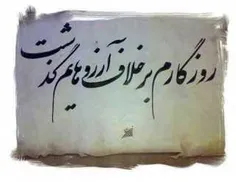 روزگارم بر خلاف آرزوهایم گذشت